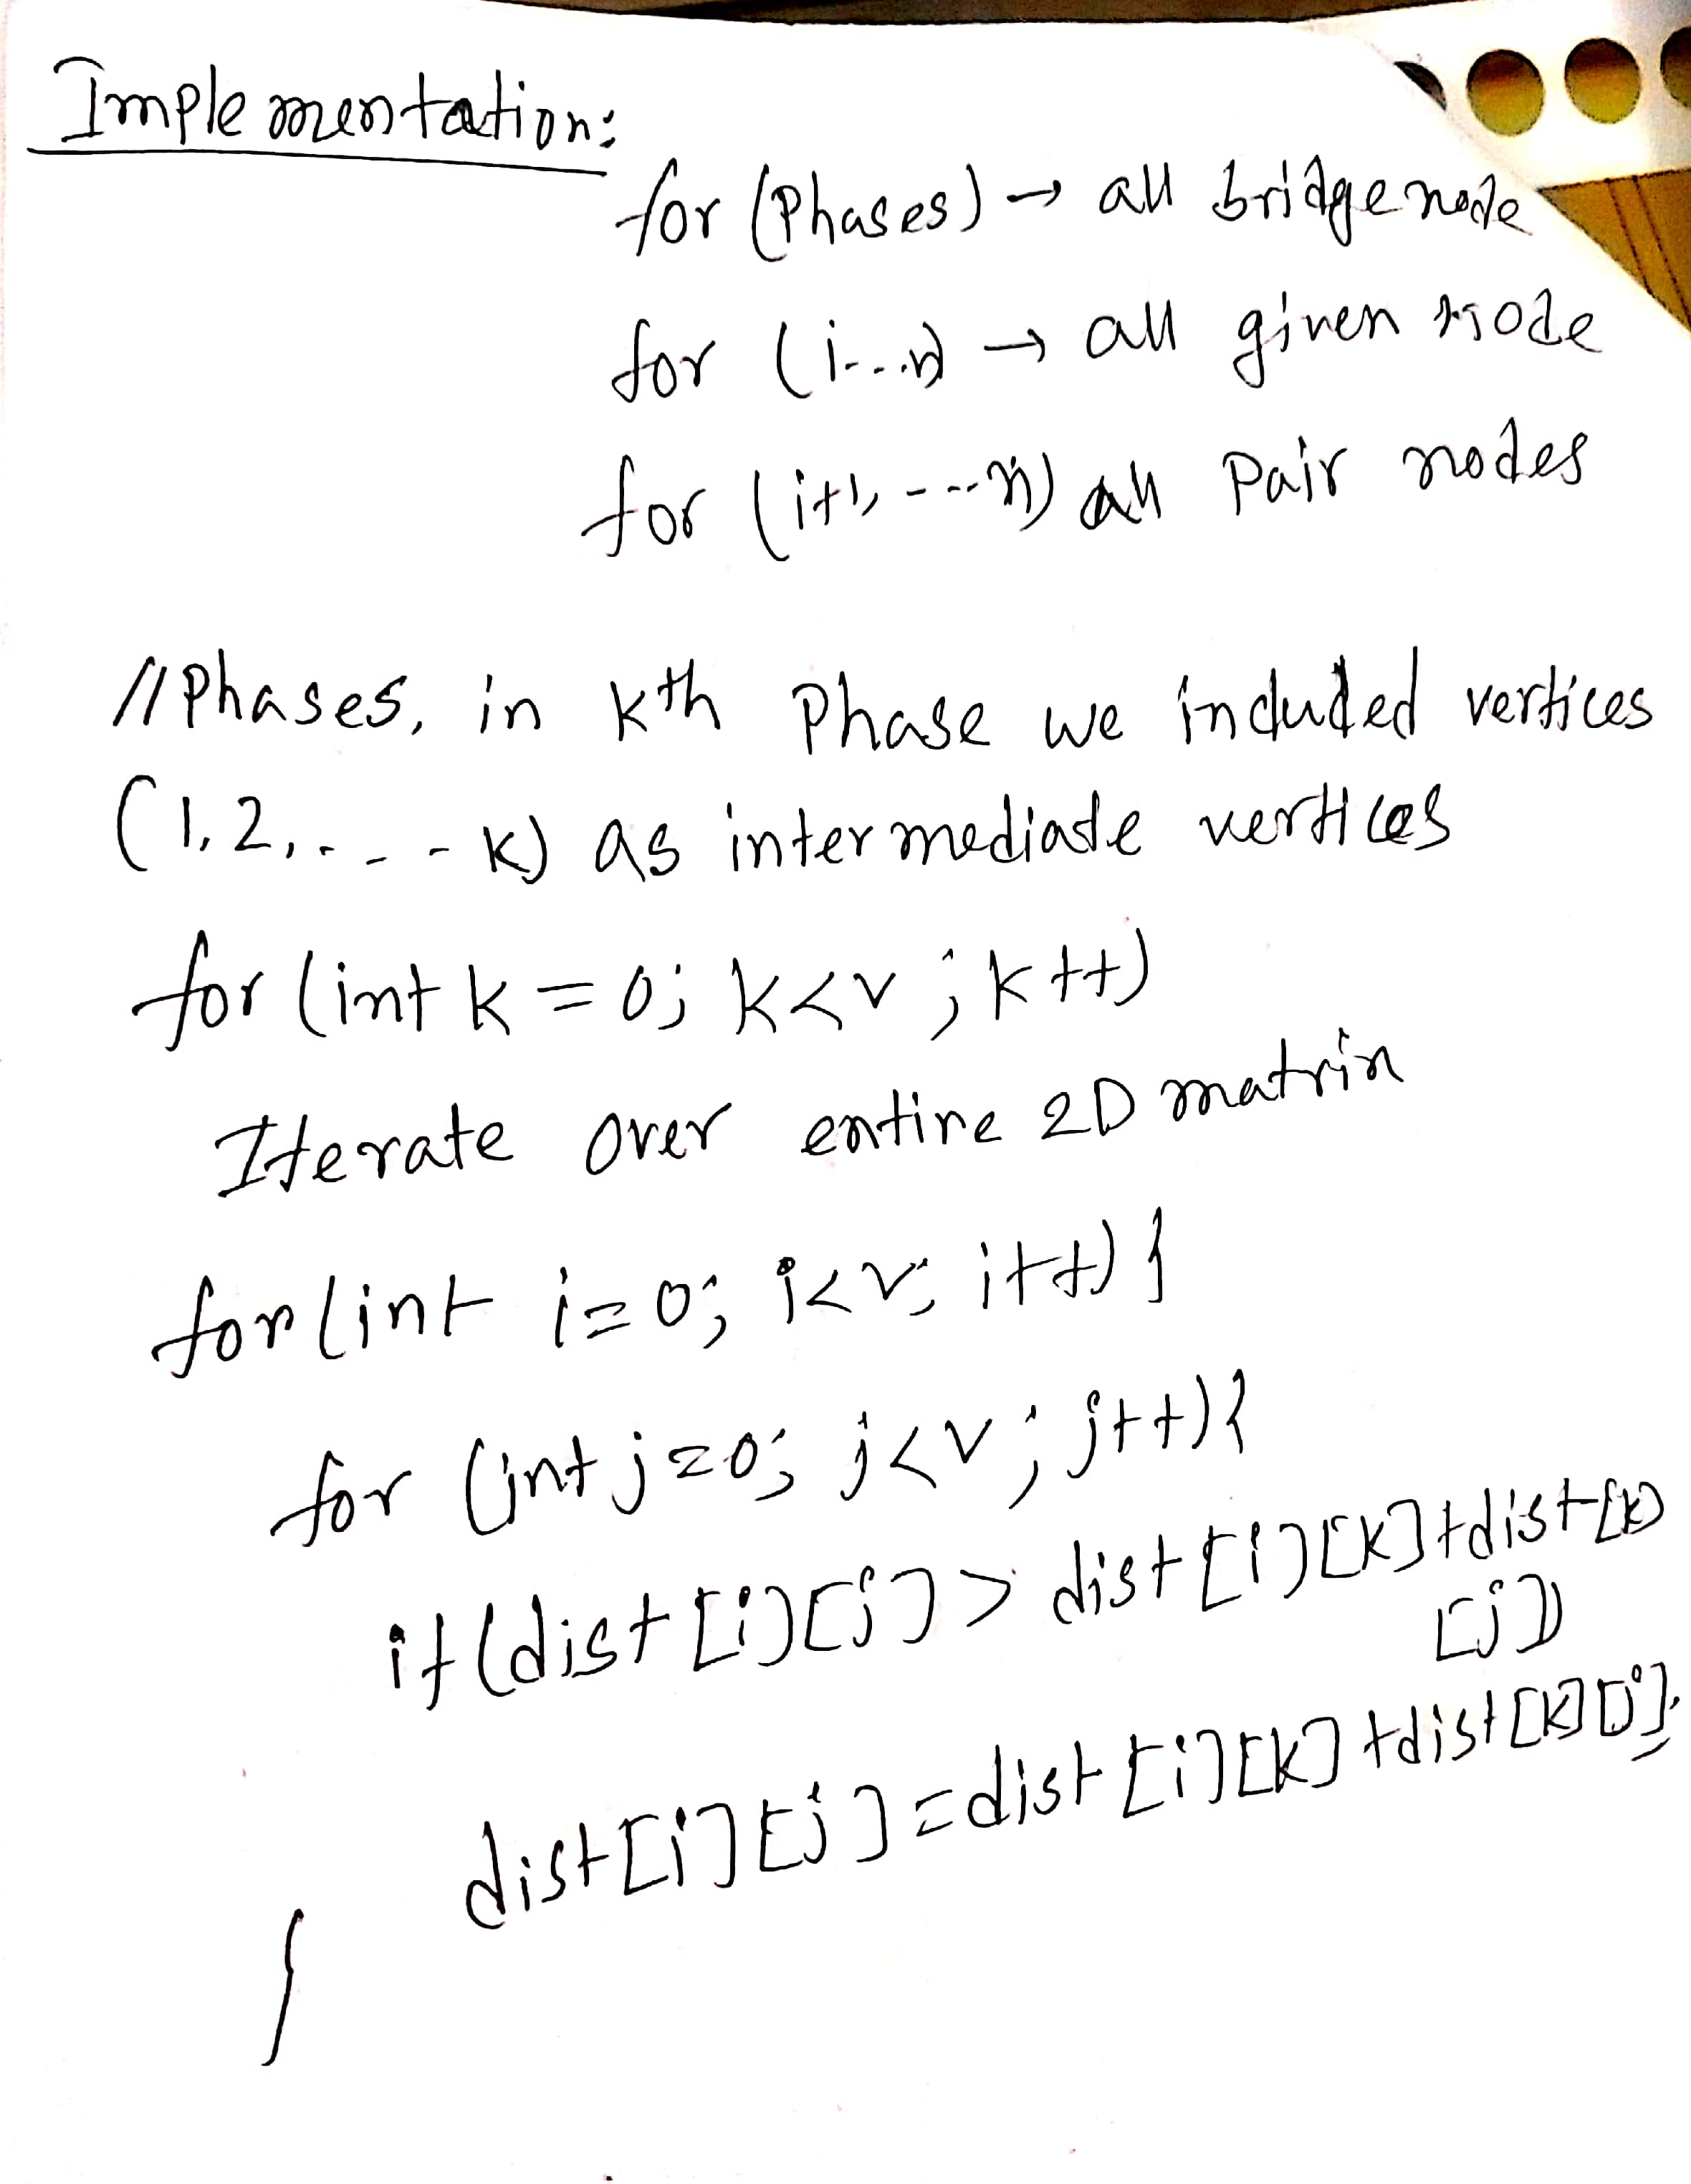 Implementation:
for (Phases) → all bridge node
for (i...n) → all given node
for (i+1, ---n) all Pair nodes
// Phases, in kth Phase we included vertices
(1, 2, . - - - k) as intermediate vertices
for (int k = 0; k<v ; k++)
Iterate over entire 2D matrix
for (int i=0; i<v; i++) {
for (int j=0; j<v ; j++) {
if (dist [i][j] > dist [i][k] + dist [k]
[j])
dist [i][j] = dist [i][k] + dist [k][j];
}